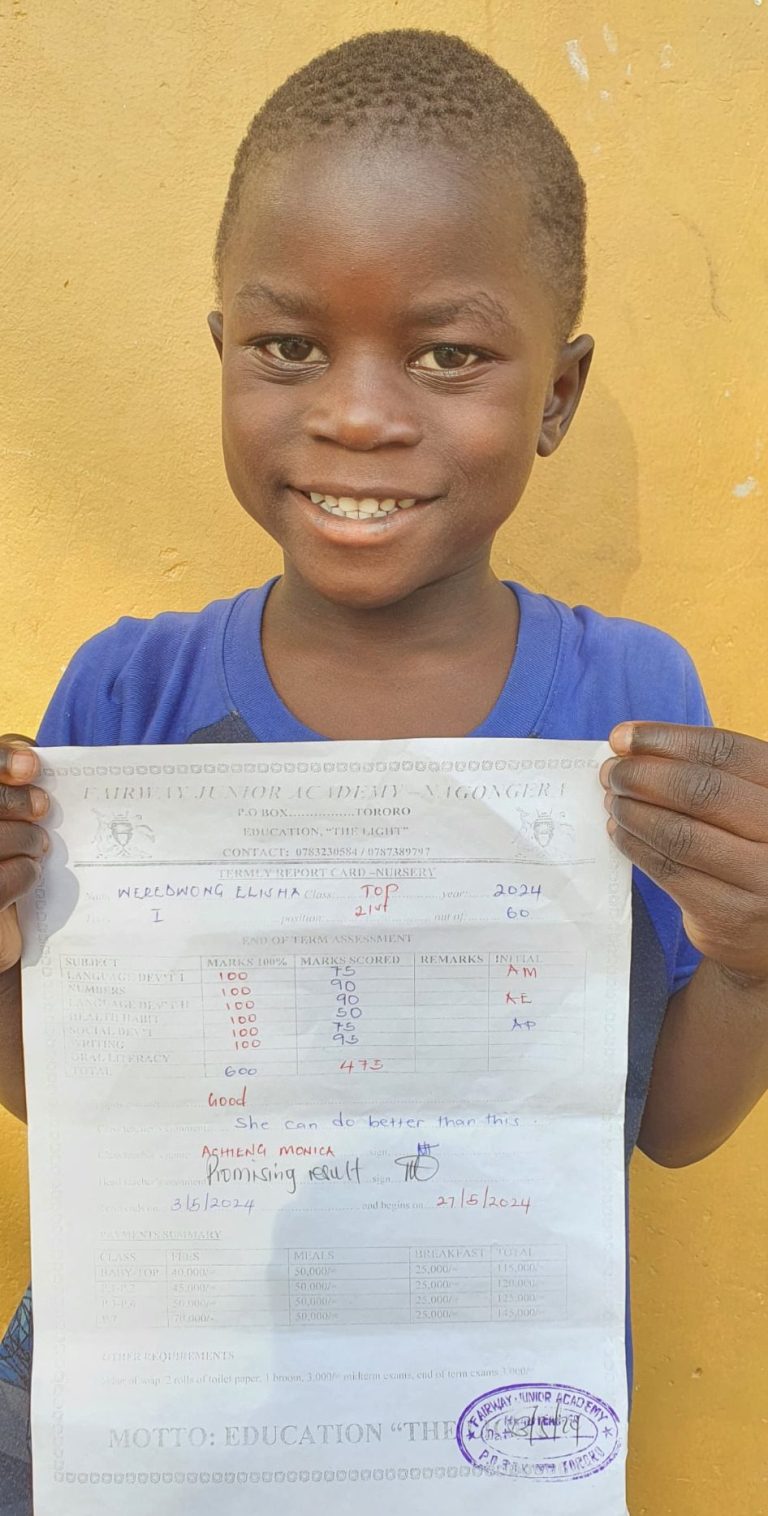 FAIRWAY JUNIOR ACADEMY –NAGONGERA
P.O BOX……………TORORO
EDUCATION, "THE LIGHT"
CONTACT: 0783230584 / 0787389797
TERMLY REPORT CARD –NURSERY
Name WEREDWONG ELISHA Class: TOP year: 2024
I position: 21st out of: 60
END OF TERM ASSESSMENT
SUBJECT MARKS 100% MARKS SCORED REMARKS INITIAL
LANGUAGE DEV'T I 100 75 AM
NUMBERS 100 90
LANGUAGE DEV'T II 100 90 AE
HEALTH HABIT 100 50
SOCIAL DEV'T 100 75 AP
WRITING 100 93
ORAL LITERACY
TOTAL 600 473
Good
She can do better than this.
ACHIENG MONICA sign.
Head teacher's comment Promising result sign
3/5/2024 and begins on 27/5/2024
PAYMENTS SUMMARY
CLASS FEES MEALS BREAKFAST TOTAL
BABY-TOP 40,000/= 50,000/= 25,000/= 115,000/=
P.1-P.2 45,000/= 50,000/= 25,000/= 120,000/=
P.3-P.6 50,000/= 50,000/= 25,000/= 125,000/=
P.7 70,000/= 50,000/= 25,000/= 145,000/=
OTHER REQUIREMENTS
of soap, 2 rolls of toilet paper, 1 broom, 3,000/= midterm exams, end of term exams
MOTTO: EDUCATION "THE
FAIRWAY JUNIOR ACADEMY
TORORO